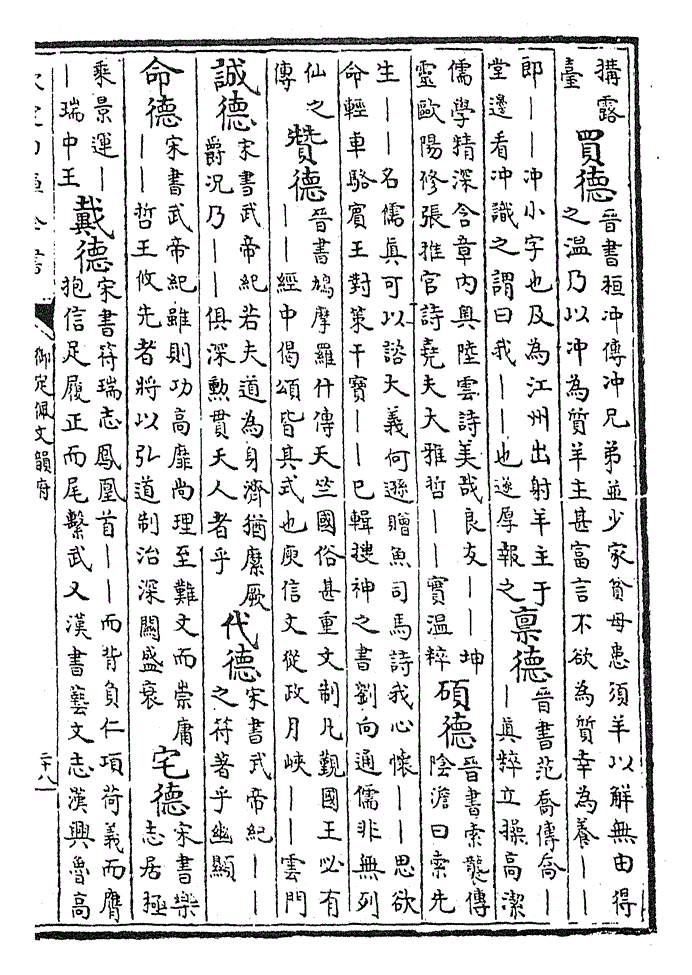 搆露
臺
買德
晉書桓冲傳冲兄弟並少家貧母患須羊以解無由得
之温乃以冲為質羊主甚富言不欲為質幸為養——
郎——冲小字也及為江州出射羊主于
堂邊看冲識之謂曰我——也遂厚報之
禀德
晉書范喬傳喬—
—真粹立操高潔
儒學精深含章内奥陸雲詩美哉良友——坤
靈歐陽修張推官詩堯夫大雅哲——實温粹
碩德
晉書索襲傳
陰澹曰索先
生——名儒眞可以諮大義何遜贈魚司馬詩我心懷——思欲
命輕車駱賔王對策干寳——已輯搜神之書劉向通儒非無列
仙之
傳
贊德
晉書鳩摩羅什傳天竺國俗甚重文制凡覲國王必有
——經中偈頌皆其式也庾信文從政月峽——雲門
誠德
宋書武帝紀若夫道為身濟猶縻厥
爵况乃——俱深勲貫天人者乎
代德
宋書武帝紀——
之符著乎幽顯
命德
宋書武帝紀雖則功高靡尚理至難文而崇庸
——哲王攸先者將以弘道制治深關盛衰
宅德
宋書樂
志居極
乗景運—
—瑞中王
戴德
宋書符瑞志鳳凰首——而背負仁項荷義而膺
抱信足履正而尾繫武又漢書藝文志漢興魯高
御定佩文韻府